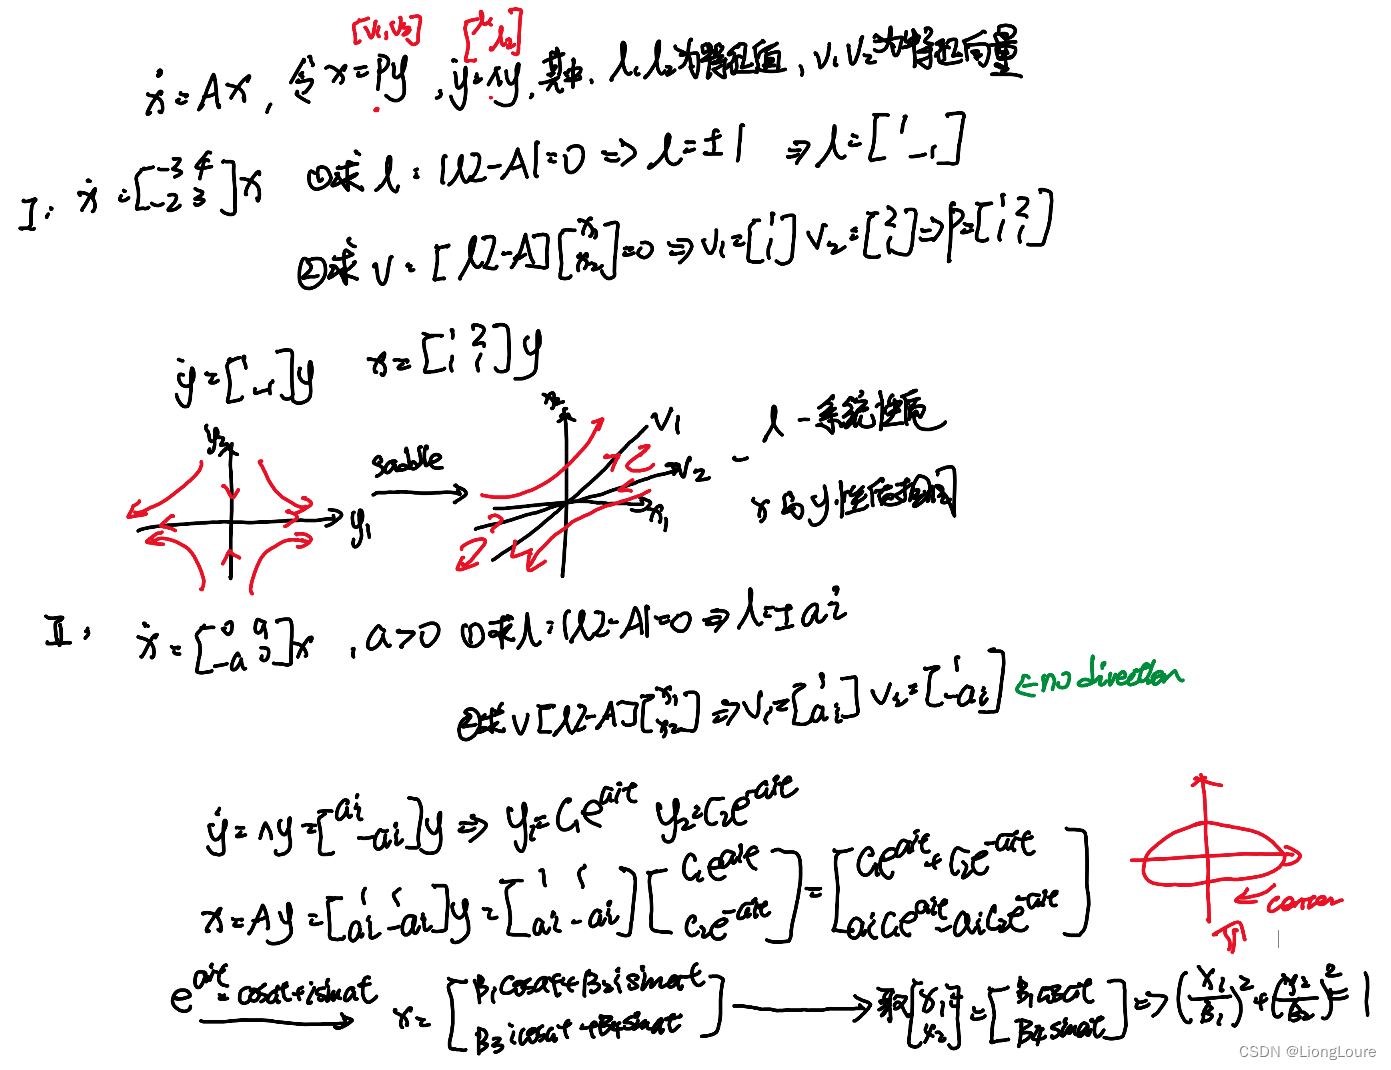 [v₁,v₂] [λ₁ λ₂]
ẋ=Ax, 令x=Py, ẏ=Λy, 其中. λ₁λ₂为特征值, v₁v₂为特征向量
I: ẋ=[-3 4; -2 3]x ①求λ: |λI-A|=0 => λ=±1 => λ=[1 -1]
②求v: [λI-A][x₁; x₂]=0 => v₁=[1; 1] v₂=[2; 1] => P=[1 2; 1 1]
ẏ=[1 -1]y x=[1 2; 1 1]y
y₂ y₁ saddle x₂ x₁ v₁ v₂ - λ - 系统性质
x与y性质相同
II: ẋ=[0 a; -a 0]x, a>0 ①求λ: |λI-A|=0 => λ=±ai
②求v [λI-A][x₁; x₂] => v₁=[1; ai] v₂=[1; -ai] <-no direction
ẏ=Λy=[ai -ai]y => y₁=C₁e^{ait} y₂=C₂e^{-ait}
x=Ay=[1 1; ai -ai]y=[1 1; ai -ai][C₁e^{ait}; C₂e^{-ait}]=[C₁e^{ait}+C₂e^{-ait}; aiC₁e^{ait}-aiC₂e^{-ait}]
e^{ait}=cosat+isinat x=[B₁cosat+B₂isinat; B₃icosat+B₄sinat] → 取[x₁; x₂]=[B₁cosat; B₄sinat] => (x₁/B₁)²+(x₂/B₂)²=1
CSDN @LiongLoure